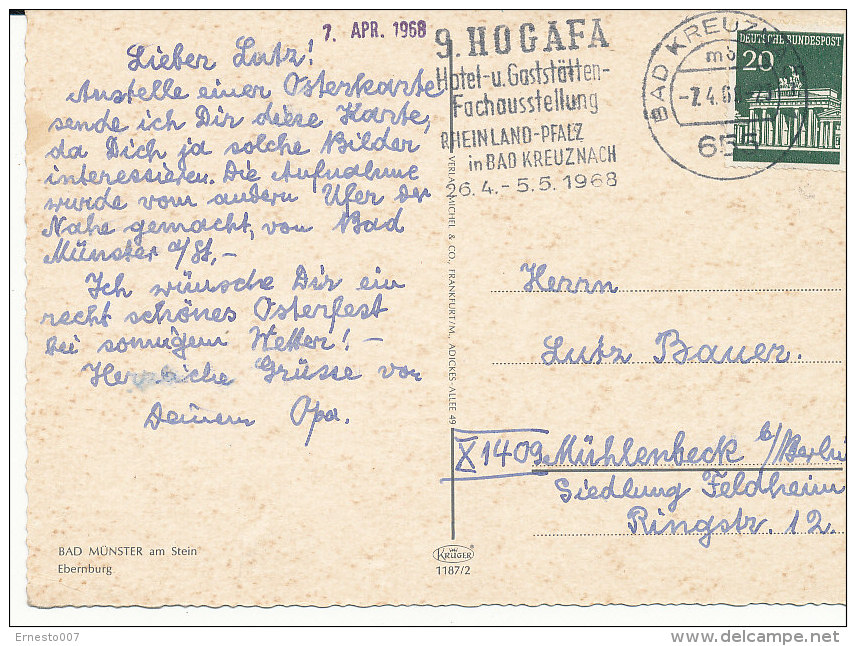 7. APR. 1968
Lieber Lutz!
Anstelle einer Osterkarte
sende ich Dir diese Karte,
da Dich ja solche Bilder
interessieren. Die Aufnahme
wurde vom andern Ufer der
Nahe gemacht, von Bad
Münster a/St,-
Ich wünsche Dir ein
recht schönes Osterfest
bei sonnigem Wetter! -
Herzliche Grüsse von
Deinem Opa.
BAD MÜNSTER am Stein
Ebernburg
VERLAG MICHEL & CO., FRANKFURT/M., ADICKES-ALLEE 49
9. HOGAFA
Hotel-u. Gaststätten-
Fachausstellung
RHEINLAND-PFALZ
in BAD KREUZNACH
26.4.-5.5.1968
BAD KREUZ
-7.4.6
655
DEUTSCHE BUNDESPOST
20
Herrn
Lutz Bauer.
X1409 Mühlenbeck b/Berlin
Siedlung Feldheim
Ringstr. 12.
KRÜGER
1187/2
Ernesto007
delcampe.net